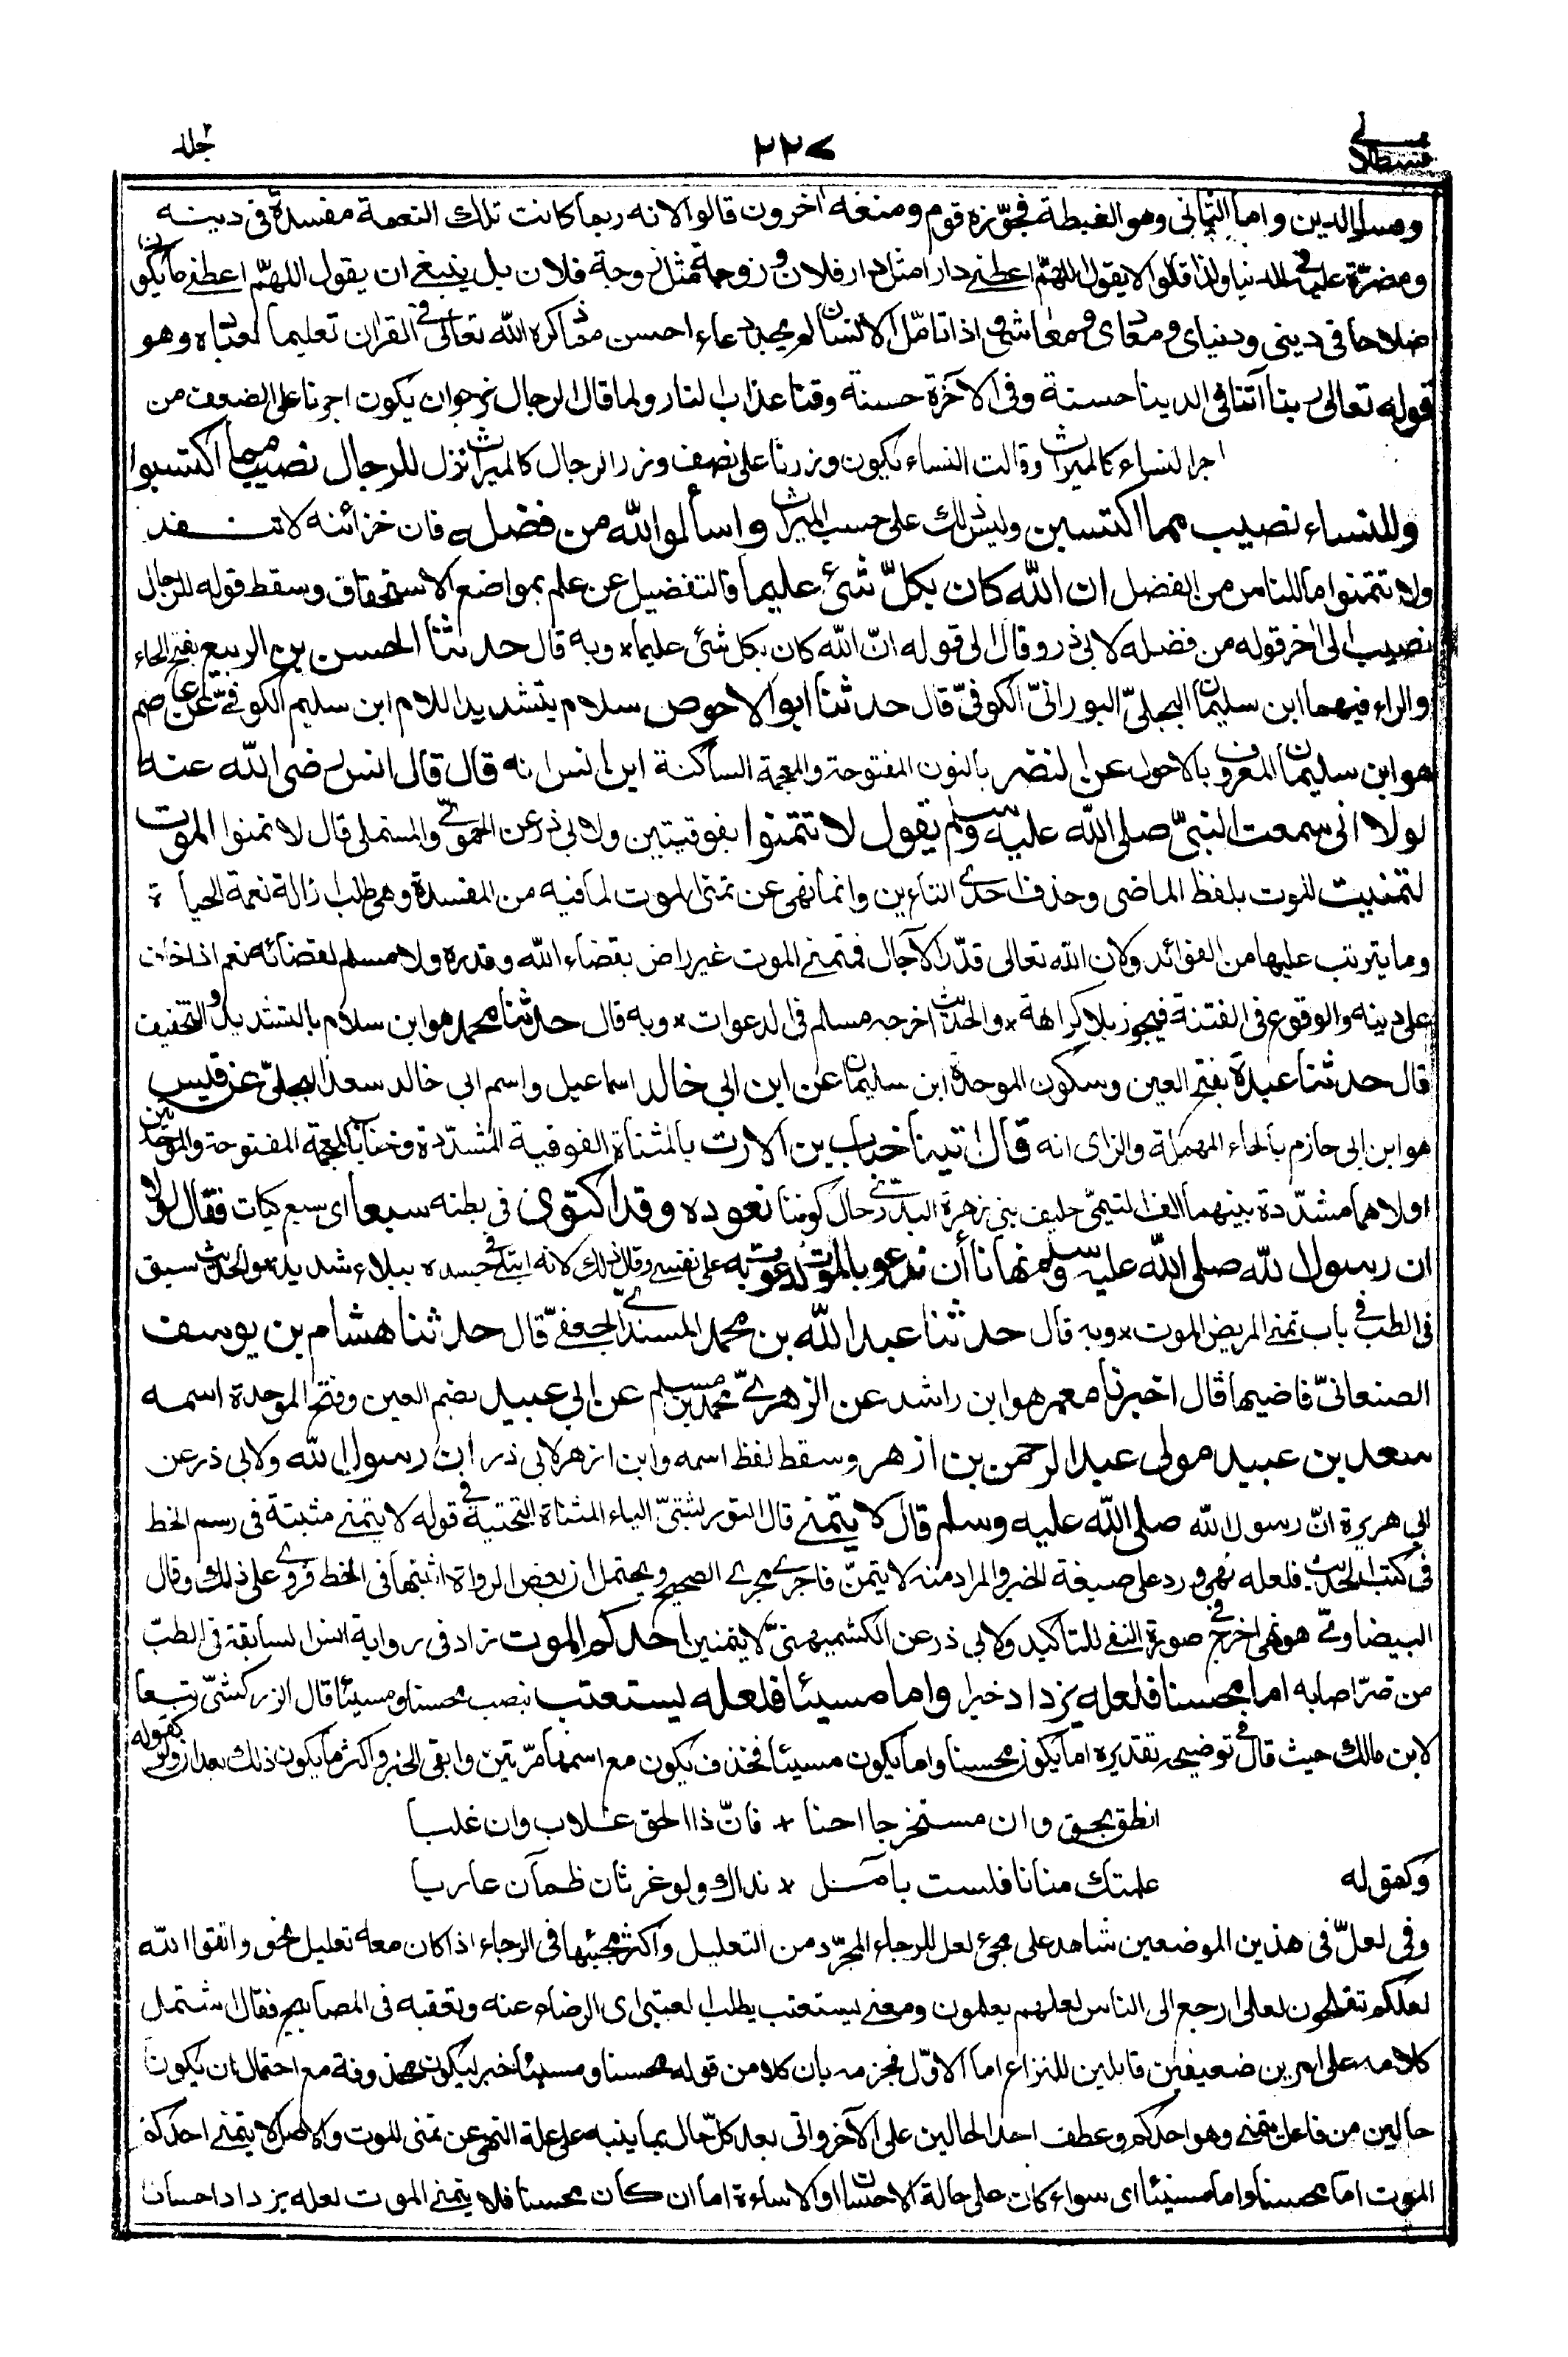 قسطلانی
۲۲۷
جلد
ومسلم الدين واما التمانى وهو الغبطة فجوّزه قوم ومنعه اخرون قالوا لانه ربما كانت تلك النعمة مفسدة فى دينه
ومضرّة عليه فى الدنيا ولذا قالوا لا يقول اللهمّ اعطنى دارا مثل دار فلان و زوجة مثل زوجة فلان بل ينبغى ان يقول اللهمّ اعطنى ما يكون
صلاحا فى دينى ودنياى ومعادى ومعاشى واذا تامّل الانسان لم يجد دعاء احسن مما ذكره الله تعالى فى القران تعليما لعباده وهو
قوله تعالى ربنا آتنا فى الدينا حسنة وفى الآخرة حسنة وقنا عذاب النار ولما قال الرجال نرجو ان يكون اجرنا على الضعف من
اجر النساء كالميراث وقالت النساء يكون وزرنا على نصف وزر الرجال كالميراث نزل للرجال نصيب مما اكتسبوا
وللنساء نصيب مما اكتسبن وليس ذلك على حسب الميراث واسألوا الله من فضله فان خزائنه لا تنفد
ولا تتمنوا ما للناس من الفضل ان الله كان بكلّ شئ عليما فالتفضيل عن علم بمواضع الاستحقاق وسقط قوله للرجال
نصيب الى اخر قوله من فضله لابى ذر وقال الى قوله انّ الله كان بكل شئ عليما * وبه قال حدثنا الحسن بن الربيع بفتح الحاء
والراء فيهما ابن سليمان البجلىّ البورانىّ الكوفىّ قال حدثنا ابو الاحوص سلام بتشديد اللام ابن سليم الكوفىّ عن عاصم
هو ابن سليمان المعروف بالاحول عن النضر بالنون المفتوحة والمعجمة الساكنة ابن انس انه قال قال انس رضى الله عنه
لولا انى سمعت النبىّ صلى الله عليه وسلم يقول لا تتمنوا بفوقيتين ولابى ذر عن الحموى والمستملى قال لا تمنوا الموت
لتمنيت الموت بلفظ الماضى وحذف احدى التاءين وانما نهى عن تمنى الموت لما فيه من المفسدة وهى طلب ازالة نعمة الحياة
وما يترتب عليها من الفوائد ولان الله تعالى قدّر الآجال فمتمنى الموت غير راض بقضاء الله وقدره ولا مسلم لقضائه نعم اذا خاف
على دينه والوقوع فى الفتنة فيجوز بلا كراهة * والحديث اخرجه مسلم فى الدعوات * وبه قال حدثنا محمد هو ابن سلام بالتشديد والتخفيف
قال حدثنا عبدة بفتح العين وسكون الموحدة ابن سليمان عن ابن ابى خالد اسماعيل واسم ابى خالد سعد البجلىّ عن قيس
هو ابن ابى حازم بالحاء المهملة والزاى انه قال اتينا خباب بن الارت بالمثناة الفوقية المشدّدة وخباب بالمعجمة المفتوحة والموحدتين
اولاهما مشدّدة بينهما الف التيمىّ حليف بنى زهرة البدرى حال كوننا نعوده وقد اكتوى فى بطنه سبعا اى سبع كيات فقال لولا
ان رسول الله صلى الله عليه وسلم نهانا أن ندعو بالموت لدعوت به على نفسى وقال ذلك لانه ابتلى فى جسده ببلاء شديد * والحديث سبق
فى الطب فى باب تمنى المريض الموت * وبه قال حدثنا عبد الله بن محمد المسندى الجعفىّ قال حدثنا هشام بن يوسف
الصنعانىّ قاضيها قال اخبرنا معمر هو ابن راشد عن الزهرىّ محمد بن مسلم عن ابى عبيد بضم العين وفتح الموحدة اسمه
سعد بن عبيد مولى عبد الرحمن بن ازهر وسقط لفظ اسمه وابن ازهر لابى ذر ان رسول الله ولابى ذر عن
ابى هريرة انّ رسول الله صلى الله عليه وسلم قال لا يتمنى قال التوربشتىّ الياء المثناة التحتية فى قوله لا يتمنى مثبتة فى رسم الخط
فى كتب الحديث فلعله نهى ورد على صيغة الخبر والمراد منه لا يتمنّ فاجرى مجرى الصحيح ويحتمل ان بعض الرواة اثبتها فى الخط فروى على ذلك وقال
البيضاوىّ هو نهى اخرج فى صورة النفى للتاكيد ولابى ذر عن الكشميهنىّ لا يتمنين احدكم الموت زاد فى رواية انس السابقة فى الطبّ
من ضرّ اصابه اما محسنا فلعله يزداد خيرا واما مسيئا فلعله يستعتب نصب محسنا ومسيئا قال الزركشىّ تبعا
لابن مالك حيث قال فى توضيحه تقديره اما يكون محسنا واما يكون مسيئا فحذف يكون مع اسمها مرّتين وابقى الخبر واكثر ما يكون ذلك بعد ان ولو كقوله
انطق بحق وان مستخرجا احنا * فانّ ذا الحق غلاب وان غلبا
وكقوله علمتك منانا فلست بآمل * نداك ولو غرثان ظمآن عاريا
وفى لعلّ فى هذين الموضعين شاهد على مجئ لعل للرجاء المجرّد من التعليل واكثر مجيئها فى الرجاء اذا كان معه تعليل نحو واتقوا الله
لعلكم تفلحون لعلى ارجع الى الناس لعلهم يعلمون ومعنى يستعتب يطلب العتبى اى الرضاء عنه وتعقبه فى المصابيح فقال اشتمل
كلامه على امرين ضعيفين قابلين للنزاع اما الاوّل فجزمه بان كلا من قوله محسنا ومسيئا خبر ليكون محذوفة مع احتمال ان يكونا
حالين من فاعل يتمنى وهو احدكم وعطف احد الحالين على الآخر واتى بعد كلّ حال بما ينبه على علة النهى عن تمنى الموت والاصل لا يتمنى احدكم
الموت اما محسنا واما مسيئا اى سواء كان على حالة الاحسان او الاساءة اما ان كان محسنا فلا يتمنى الموت لعله يزداد احسانا